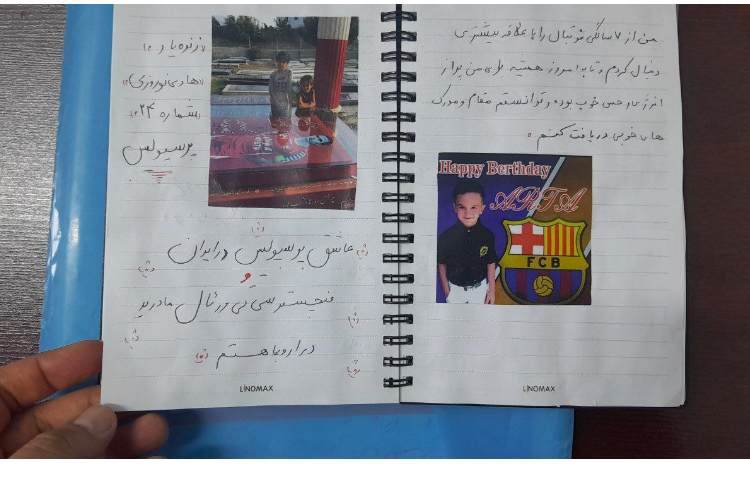 من از ۷ سالگی فوتبال را با علاقه بیشتری
دنبال کردم و تا به امروز همیشه برای من پر از
انرژی و حس خوب بوده و توانستم مقام و مدرک
های خوبی دریافت کنم.
Happy Berthday
ARTA
FCB
LINOMAX
زنده یاد
«هادی نوروزی»
شماره ۲۴
پرسپولیس
عاشق پرسپولیس در ایران
و
منچستر سیتی و رئال مادرید
در اروپا هستم
LINOMAX